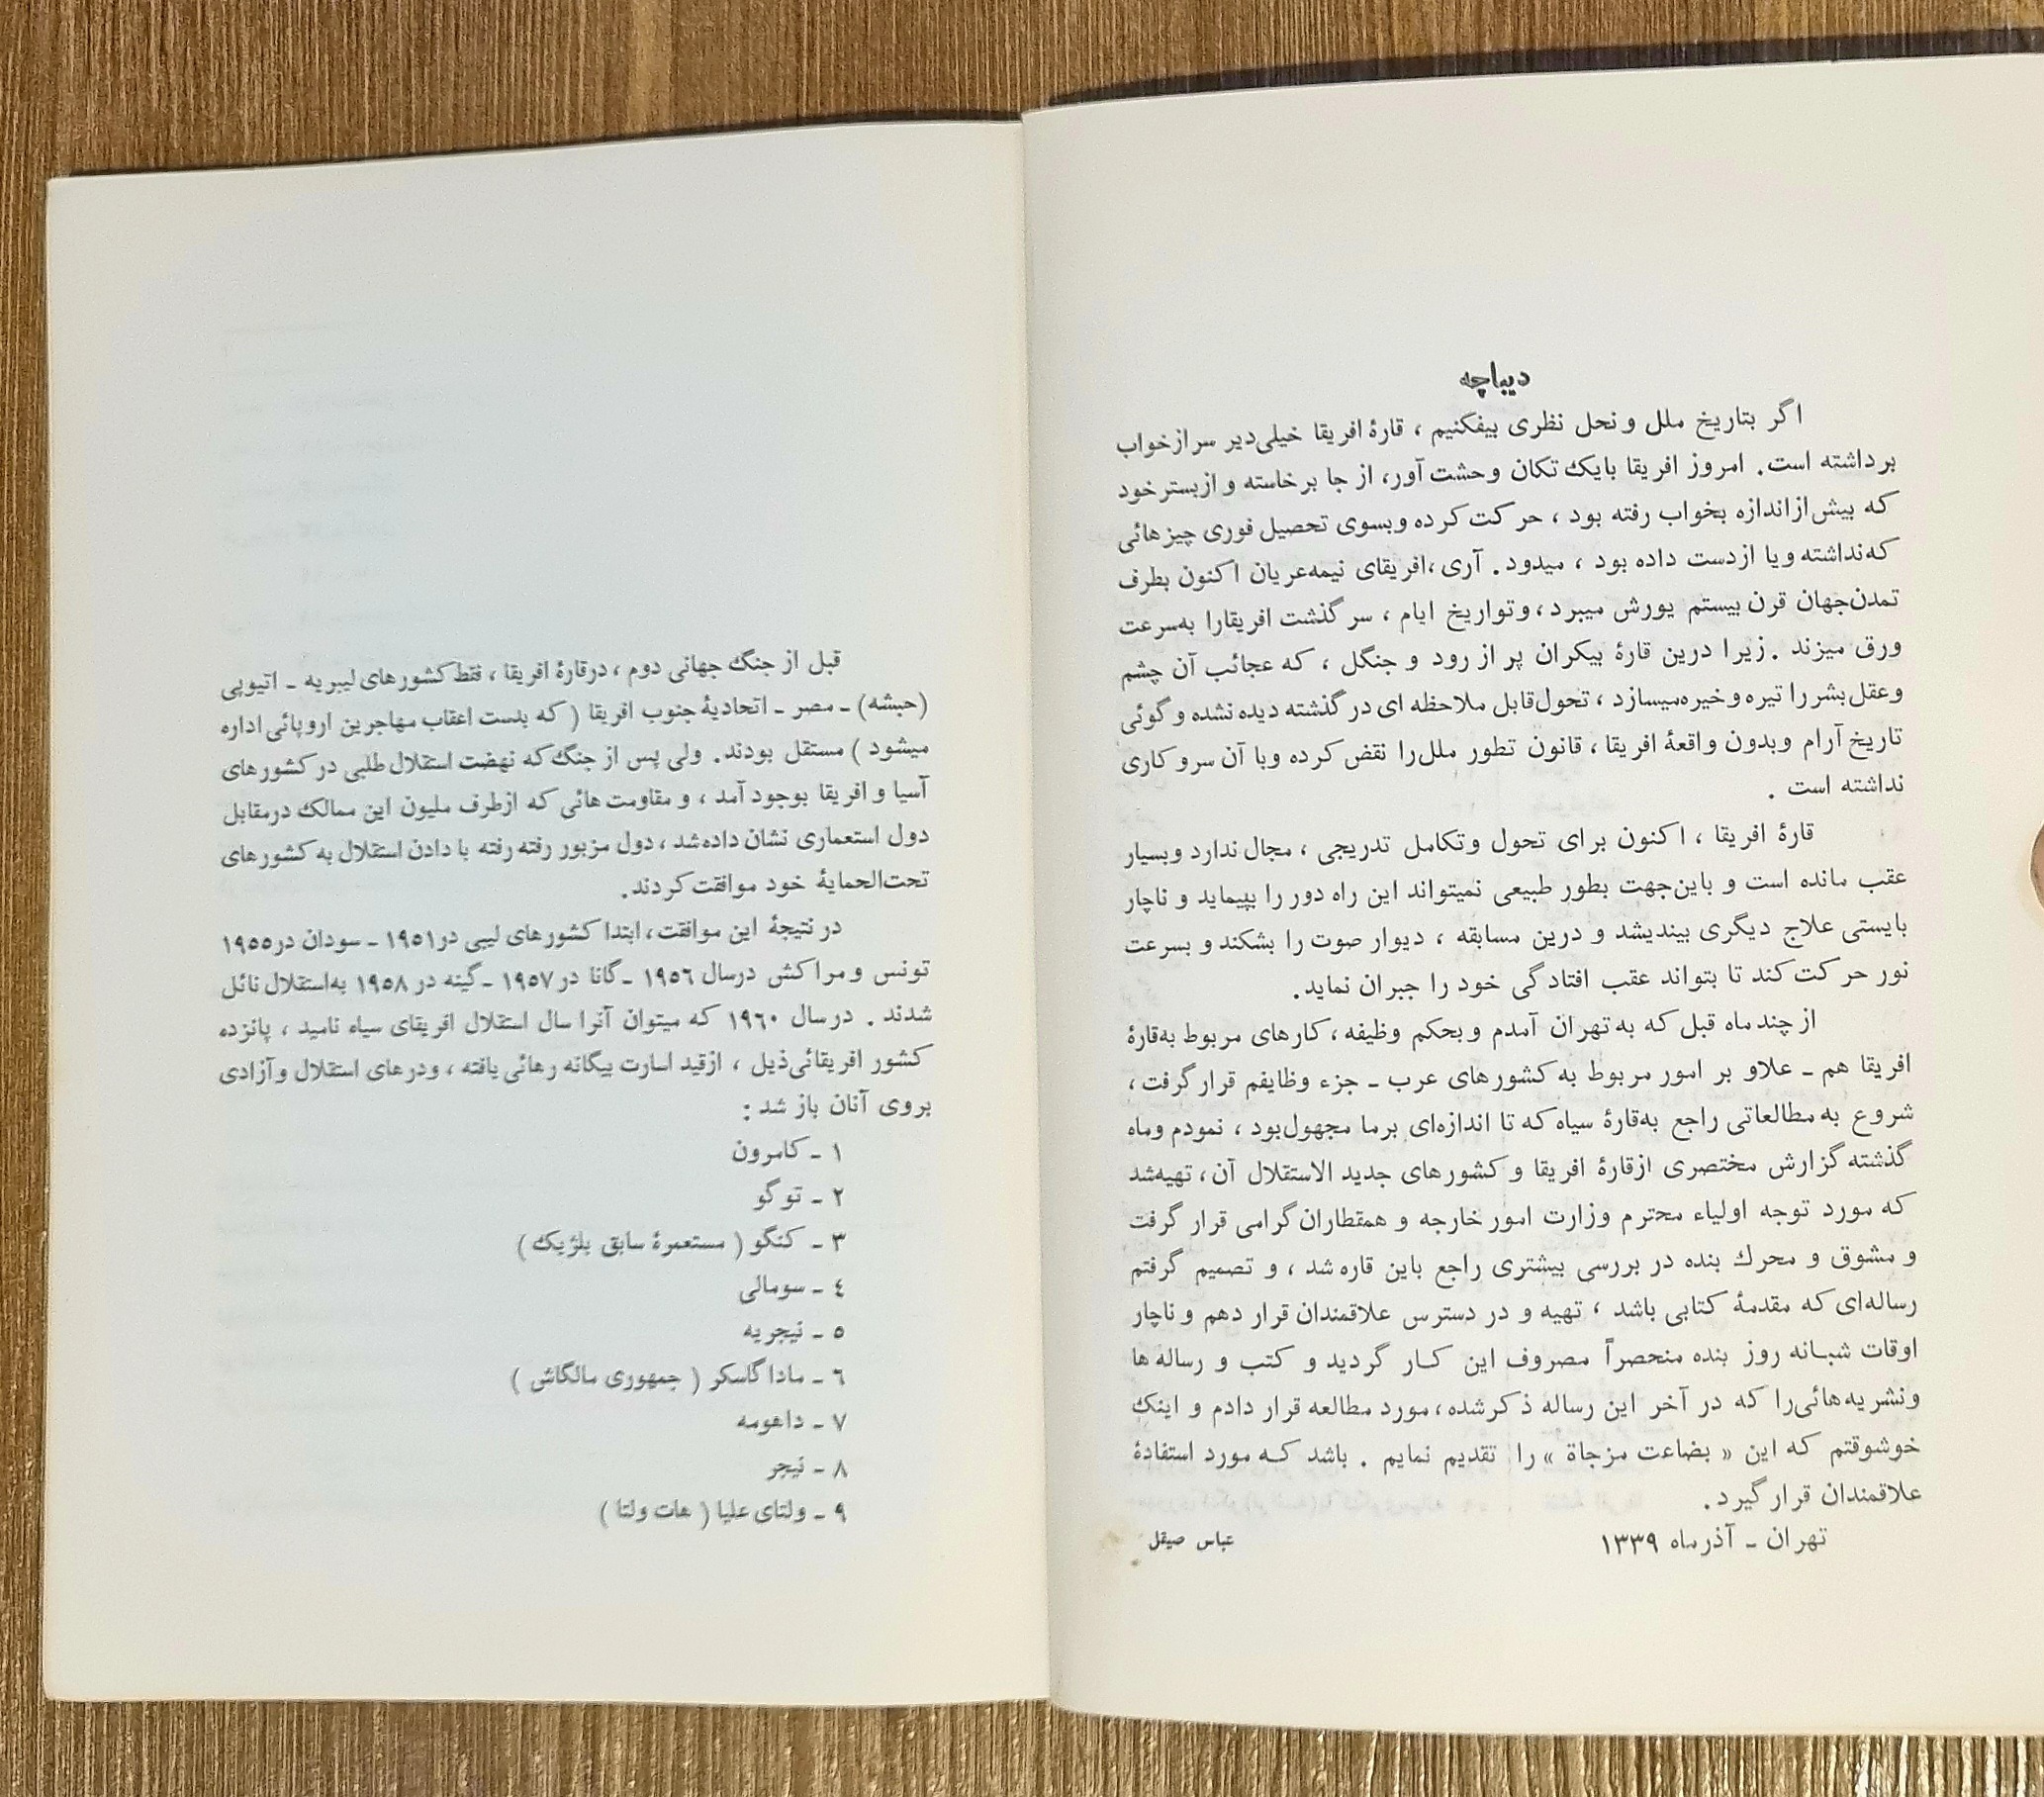 دیباچه
اگر بتاریخ ملل و نحل نظری بیفکنیم ، قارهٔ افریقا خیلی‌دیر سر از خواب
برداشته است. امروز افریقا بایک تکان وحشت آور، از جا برخاسته و از بستر خود
که بیش از اندازه بخواب رفته بود ، حرکت کرده وبسوی تحصیل فوری چیزهائی
که‌نداشته ویا ازدست داده بود ، میدود. آری ،افریقای نیمه‌عریان اکنون بطرف
تمدن‌جهان قرن بیستم یورش میبرد ، وتواریخ ایام ، سرگذشت افریقارا به‌سرعت
ورق میزند . زیرا درین قارهٔ بیکران پر از رود و جنگل ، که عجائب آن چشم
وعقل‌بشر را تیره و خیره‌میسازد ، تحول‌قابل ملاحظه ای در گذشته دیده نشده و گوئی
تاریخ آرام وبدون واقعهٔ افریقا ، قانون تطور ملل‌را نقض کرده وبا آن سرو کاری
نداشته است .
قارهٔ افریقا ، اکنون برای تحول وتکامل تدریجی ، مجال ندارد وبسیار
عقب مانده است و باین‌جهت بطور طبیعی نمیتواند این راه دور را بپیماید و ناچار
بایستی علاج دیگری بیندیشد و درین مسابقه ، دیوار صوت را بشکند و بسرعت
نور حرکت کند تا بتواند عقب افتادگی خود را جبران نماید.
از چند ماه قبل که به تهران آمدم و بحکم وظیفه ، کارهای مربوط به‌قارهٔ
افریقا هم ـ علاو بر امور مربوط به کشورهای عرب ـ جزء وظایفم قرار گرفت ،
شروع به مطالعاتی راجع به‌قارهٔ سیاه که تا اندازه‌ای برما مجهول‌بود ، نمودم وماه
گذشته گزارش مختصری ازقارهٔ افریقا و کشورهای جدید الاستقلال آن، تهیه‌شد
که مورد توجه اولیاء محترم وزارت امور خارجه و همقطاران گرامی قرار گرفت
و مشوق و محرك بنده در بررسی بیشتری راجع باین قاره شد ، و تصمیم گرفتم
رساله‌ای که مقدمهٔ کتابی باشد ، تهیه و در دسترس علاقمندان قرار دهم و ناچار
اوقات شبـانه روز بنده منحصراً مصروف این کـار گردید و کتب و رساله ها
ونشریه‌هائی‌را که در آخر این رساله ذکرشده، مورد مطالعه قرار دادم و اینک
خوشوقتم که این « بضاعت مزجاة » را تقدیم نمایم . باشد کـه مورد استفادهٔ
علاقمندان قرار گیرد.
تهران ـ آذرماه ۱۳۳۹ عباس صیقل
قبل از جنگ جهانی دوم ، درقارهٔ افریقا ، فقط کشورهای لیبریه ـ اتیوپی
(حبشه) ـ مصر ـ اتحادیهٔ جنوب افریقا ( که بدست اعقاب مهاجرین اروپائی اداره
میشود ) مستقل بودند. ولی پس از جنگ که نهضت استقلال طلبی در کشورهای
آسیا و افریقا بوجود آمد ، و مقاومت هائی که ازطرف ملیون این ممالک درمقابل
دول استعماری نشان داده‌شد ، دول مزبور رفته رفته با دادن استقلال به کشورهای
تحت‌الحمایهٔ خود موافقت کردند.
در نتیجهٔ این موافقت، ابتدا کشورهای لیبی در۱۹۵۱ ـ سودان در۱۹۵۵
تونس و مراکش درسال ۱۹۵٦ ـ گانا در ۱۹۵۷ ـ گینه در ۱۹۵۸ به‌استقلال نائل
شدند . درسال ۱۹٦۰ که میتوان آنرا سال استقلال افریقای سیاه نامید ، پانزده
کشور افریقائی‌ذیل ، ازقید اسارت بیگانه رهائی یافته ، ودرهای استقلال و آزادی
بروی آنان باز شد :
۱ ـ کامرون
۲ ـ توگو
۳ ـ کنگو ( مستعمرهٔ سابق بلژیک )
٤ ـ سومالی
٥ ـ نیجریه
٦ ـ ماداگاسکر ( جمهوری مالگاش )
۷ ـ داهومه
۸ ـ نیجر
۹ ـ ولتای علیا ( هات ولتا )